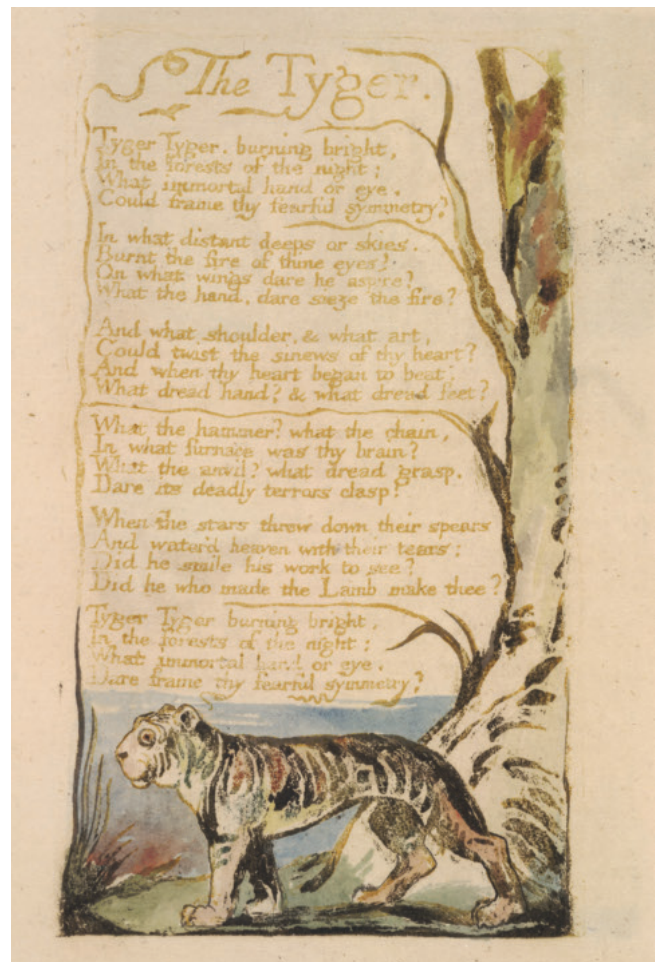 The Tyger.
Tyger Tyger. burning bright,
In the forests of the night;
What immortal hand or eye.
Could frame thy fearful symmetry?
In what distant deeps or skies.
Burnt the fire of thine eyes?
On what wings dare he aspire?
What the hand, dare sieze the fire?
And what shoulder, & what art,
Could twist the sinews of thy heart?
And when thy heart began to beat,
What dread hand? & what dread feet?
What the hammer? what the chain,
In what furnace was thy brain?
What the anvil? what dread grasp.
Dare its deadly terrors clasp?
When the stars threw down their spears
And water'd heaven with their tears:
Did he smile his work to see?
Did he who made the Lamb make thee?
Tyger Tyger burning bright,
In the forests of the night;
What immortal hand or eye.
Dare frame thy fearful symmetry?